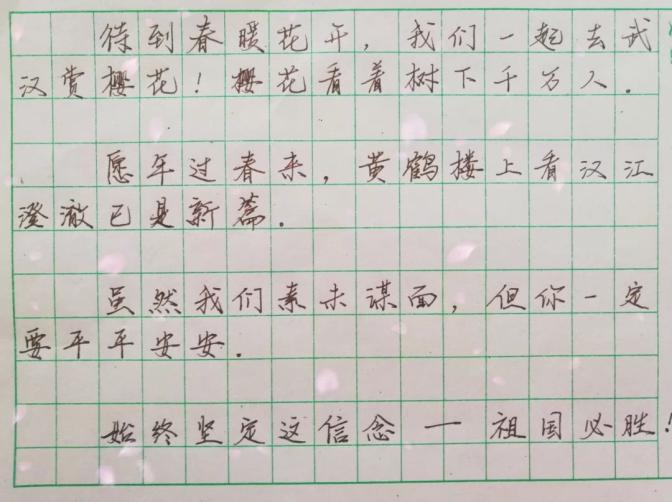 待到春暖花开，我们一起去武
汉赏樱花！樱花看着树下千万人．
愿年过春来，黄鹤楼上看汉江
澄澈已是新篇．
虽然我们素未谋面，但你一定
要平平安安．
始终坚定这信念一祖国必胜！